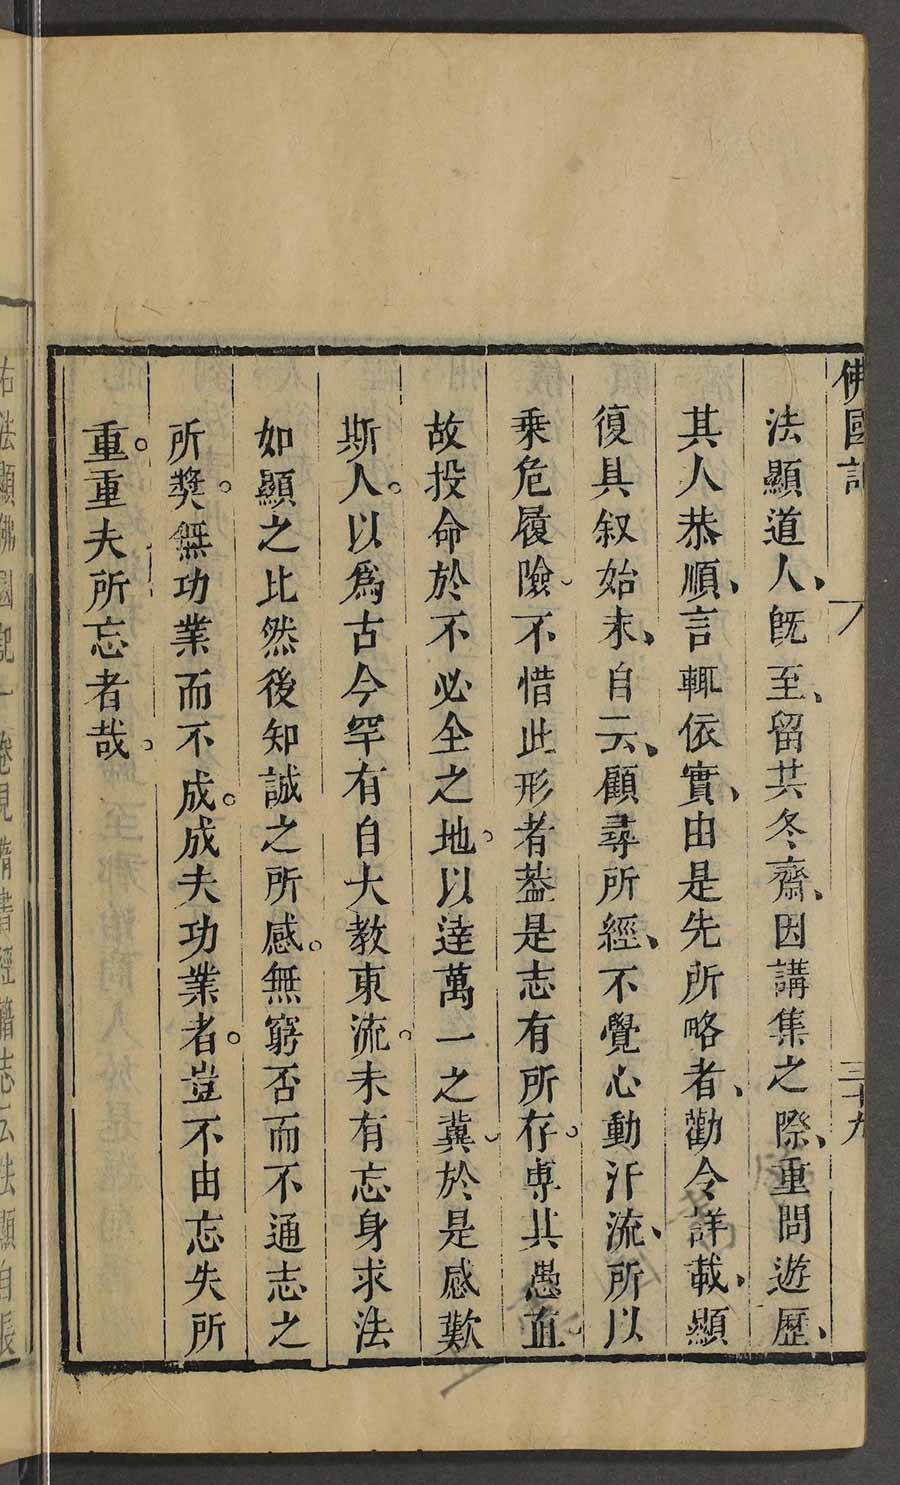 佛國記
三十九
法顯道人、旣至、留共冬齋、因講集之際、重問遊歷、
其人恭順、言輒依實、由是先所略者、勸令詳載、顯
復具叙始末、自云、顧尋所經、不覺心動汗流、所以
乗危履險、不惜此形者葢是志有所存。專其愚直、
故投命於不必全之地。以達萬一之冀、於是感歎
斯人。以爲古今罕有自大教東流。未有忘身求法
如顯之比然後知誠之所感。無窮否而不通志之
所奬。無功業而不成。成夫功業者。豈不由忘失所
重。重夫所忘者哉。
右法顯佛國記一卷見隋書經籍志云法顯自長